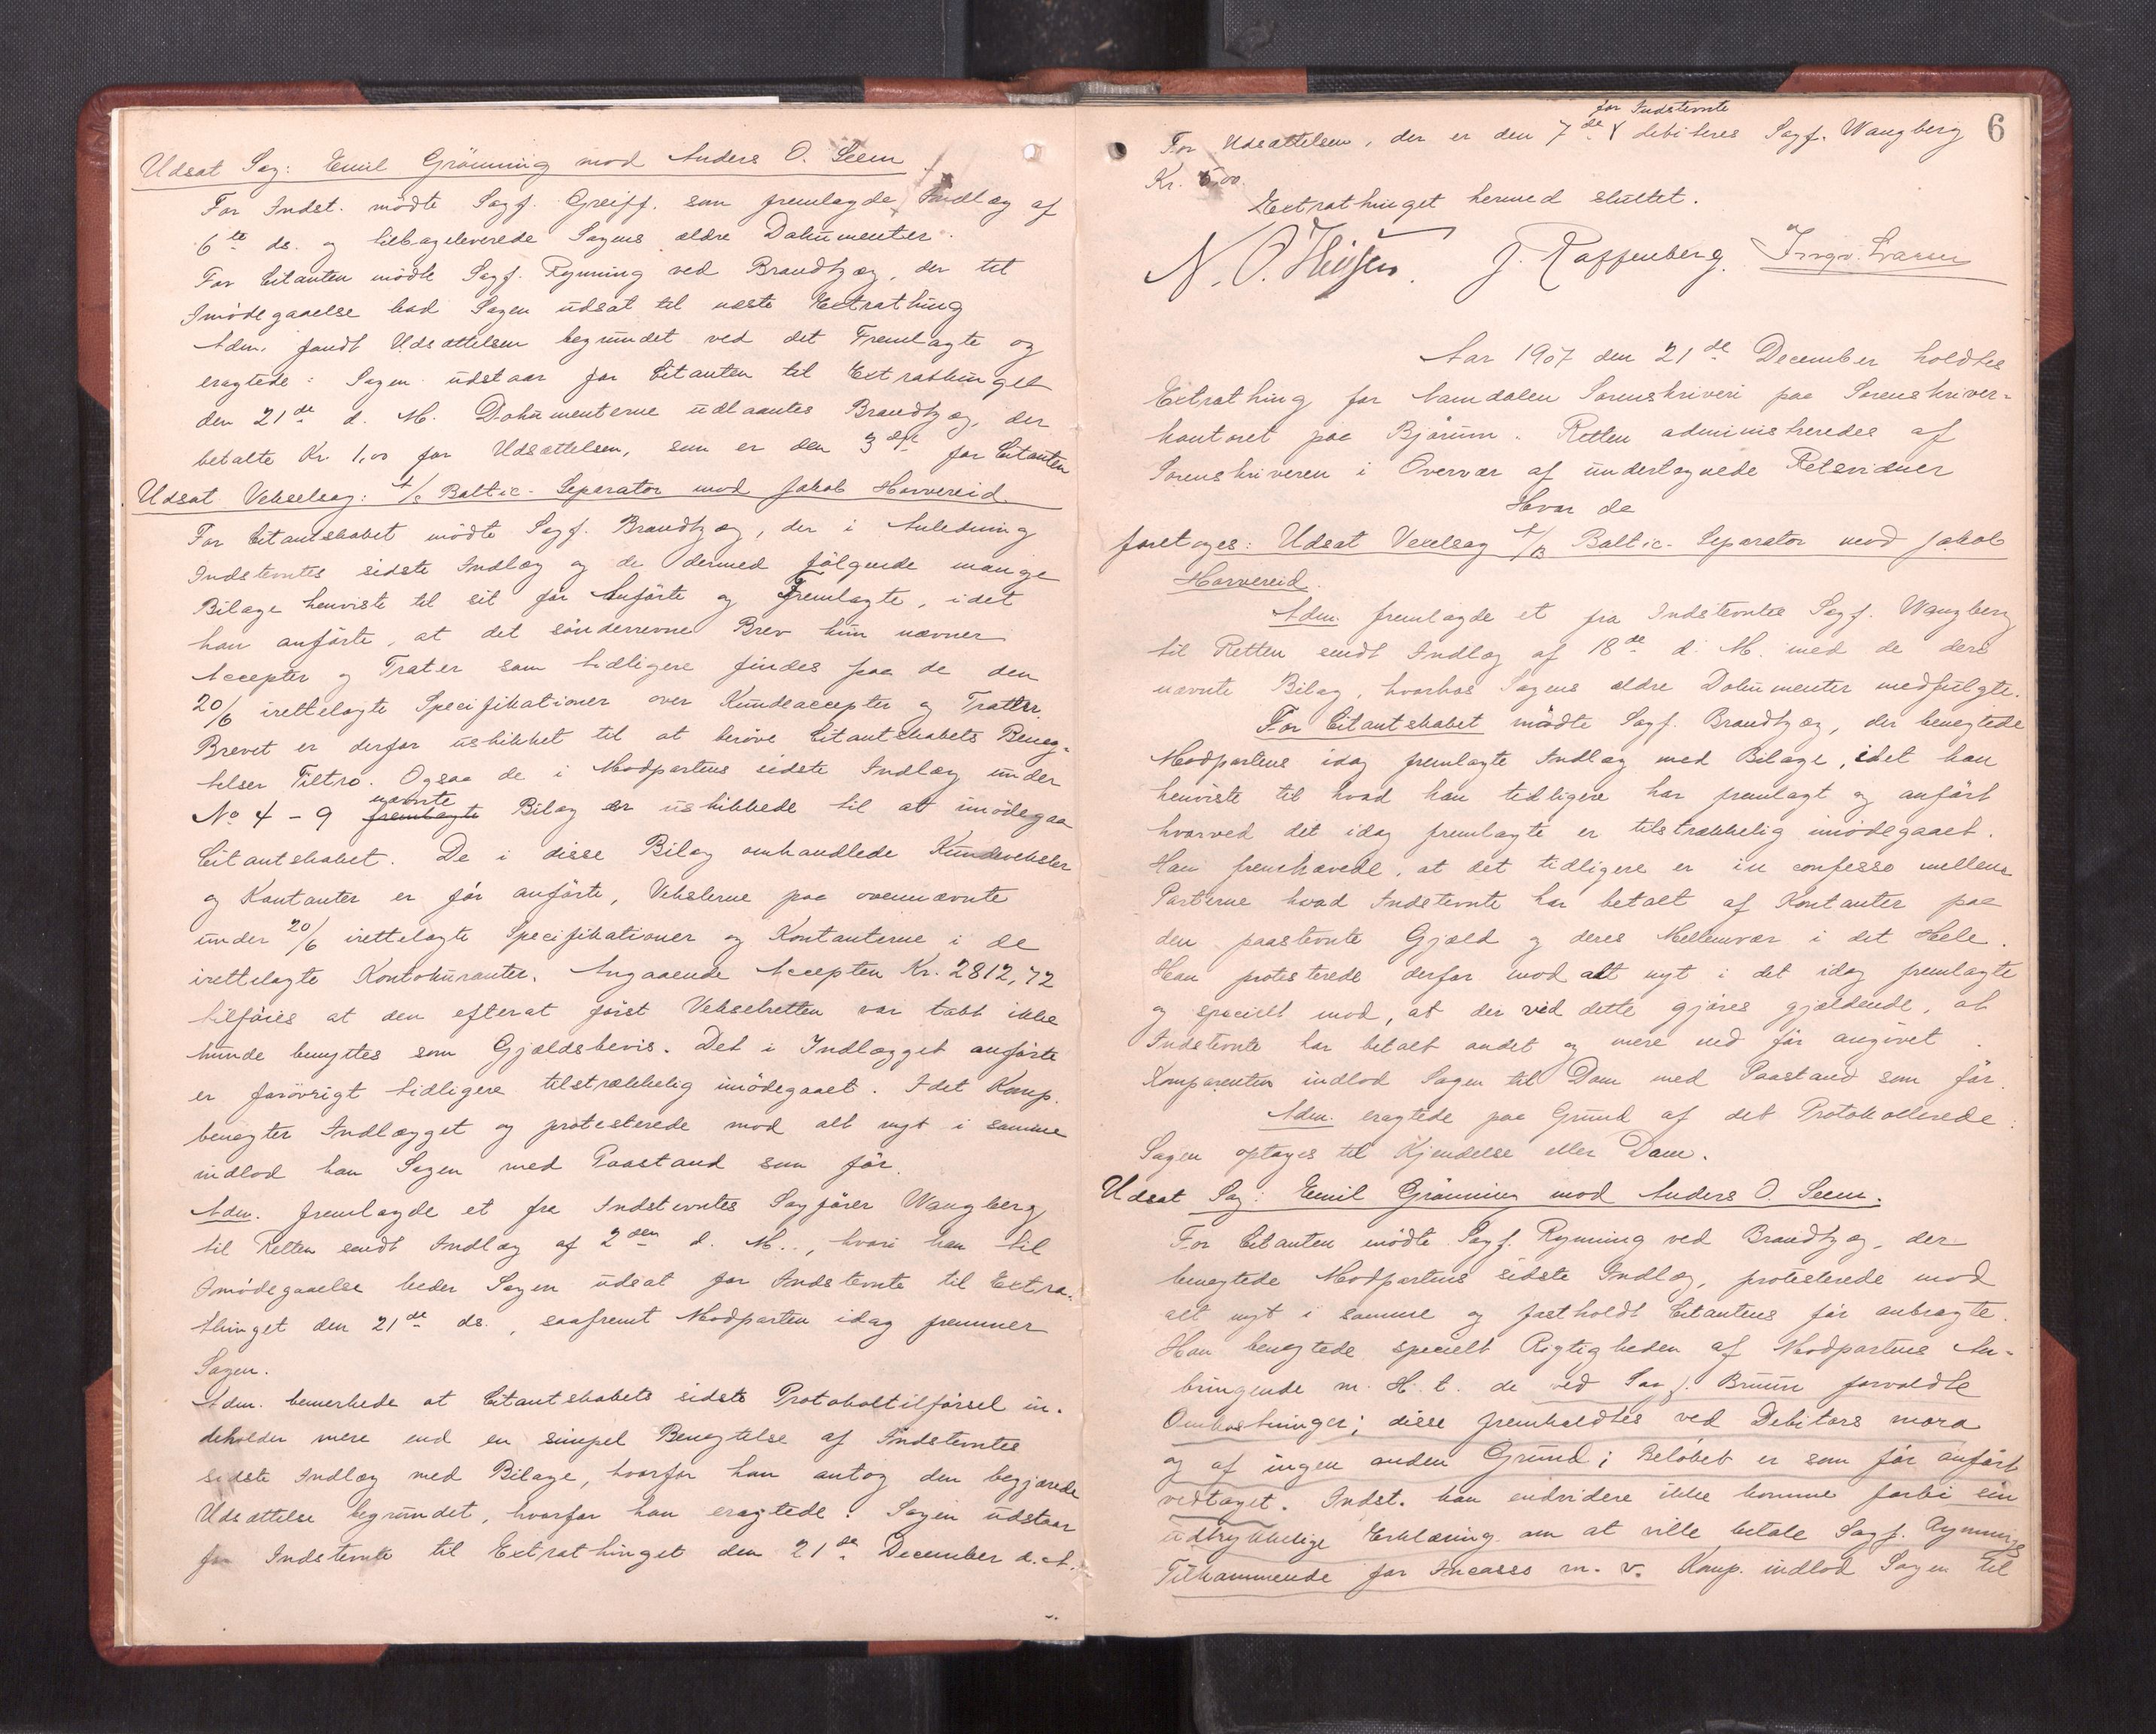 Udsat Sag: Emil Grönning mod Anders O. Seem
For Indst. mödte Sagf. Greiff. som fremlagde Indlæg af
6te ds. og tilbageleverede Sagens ældre Dokumenter.
For Citanten mödte Sagf. Rynning ved Brandtzæg, der til
Imödegaaelse bad Sagen udsat til næste Extrathing
Adm. fandt Udsættelsen begrundet ved det Fremlagte og
eragtede: Sagen udstaar for Citanten til Extrathinget
den 21de d. M. Dokumenterne udlaantes Brandtzæg, der
betalte Kr. 1,00 for Udsættelsen, som er den 3die for Citanten
Udsat Vekselsag: A/S Baltic-Separator mod Jakob Horvereid.
For Citantskabet mödte Sagf. Brandtzæg, der i Anledning
Indstevntes sidste Indlæg og de dermed fölgende mange
Bilage henviste til sit för Anförte og Fremlagte, idet
han anförte, at det sönderrevne Brev kun nævner
Accepter og Tratter som tidligere findes paa de den
20/6 irettelagte Specifikationer over Kundeaccepter og Tratter.
Brevet er derfor uskikket til at beröve Citantskabets Benæg-
telser Tiltro. Ogsaa de i Modpartens sidste Indlæg under
No 4 - 9 fremlagte nævnte Bilag er uskikkede til at imödegaa
Citantskabet. De i disse Bilag omhandlede Kundeveksler
og Kontanter er för anförte, Vekslerne paa ovennævnte
under 20/6 irettelagte Specifikationer og Kontanterne i de
irettelagte Kontokuranter. Angaaende Accepten Kr. 2812,72
tilföies at den efterat först Vekselretten var tabt ikke
kunde benyttes som Gjældsbevis. Det i Indlægget anförte
er forövrigt tidligere tilstrækkelig imödegaaet. Idet Komp.
benægter Indlægget og protesterede mod alt nyt i samme
indlod han Sagen med Paastand som för.
Adm. fremlagde et fra Indstevntes Sagförer Wangberg
til Retten sendt Indlæg af 2den d. M.., hvori han til
Imödegaaelse beder Sagen udsat for Indstevnte til Extra-
thinget den 21de ds., saafremt Modparten idag fremmer
Sagen.
Adm. bemerkede at Citantskabets sidste Protokoltilförsel in-
deholder mere end en simpel Benægtelse af Indstevntes
sidste Indlæg med Bilage, hvorfor han antog den begjærede
Udsættelse begrundet, hvorfor han eragtede: Sagen udstaar
for Indstevnte til Extrathinget den 21de December d. A.
6
For Udsættelsen, der er den 7de for Indstevnte debiteres Sagf. Wangberg
Kr. 5.00.
Extrathinget hermed sluttet.
J. Raffenberg.
Aar 1907 den 21de December holdtes
Extrathing for Namdalen Sorenskriveri paa Sorenskriver-
kontoret paa Bjørum. Retten administreredes af
Sorenskriveren i Overvær af undertegnede Retsvidner
Hvor da
foretoges: Udsat Vexelsag A/S Baltic-Separator mod Jakob
Horvereid.
Adm. fremlagde et fra Indstevntes Sagf. Wangberg
til Retten sendt Indlæg af 18de d. M. med de deri
nævnte Bilag, hvorhos Sagens ældre Dokumenter medfulgte.
For Citantskabet mödte Sagf. Brandtzæg, der benegtede
Modpartens idag fremlagte Indlæg med Bilage, idet han
henviste til hvad han tidligere har fremlagt og anfört
hvorved det idag fremlagte er tilstrækkelig imödegaaet.
Han fremhævede, at det tidligere er in confesso mellem
Parterne hvad Indstevnte har betalt af Kontanter paa
den paastevnte Gjæld og deres Mellemvær i det Hele.
Han protesterede derfor mod alt nyt i det idag fremlagte
og specielt mod, at der ved dette gjöres gjældende, at
Indstevnte har betalt andet og mere end för angivet.
Komparenten indlod Sagen til Dom med Paastand som för.
Adm. eragtede paa Grund af det Protokollerede:
Sagen optages til Kjendelse eller Dom.
Udsat Sag: Emil Grönning mod Anders O. Seem.
For Citanten mödte Sagf. Rynning ved Brandtzæg, der
benegtede Modpartens sidste Indlæg, protesterede mod
alt nyt i samme og fastholdt Citantens för anbragte.
Han benegtede specielt Rigtigheden af Modpartens An-
bringende m. H. t. de ved Sagf. Bruun forvoldte
Omkostninger; disse fremkaldtes ved Debitors mora
og af ingen anden Grund; Belöbet er som för anfört
vedtaget. Indst. kan endvidere ikke komme forbi sin
udtrykkelige Erklæring om at ville betale Sagf. Rynnings
Tilkommende for Incasso m. v. Komp. indlod Sagen til